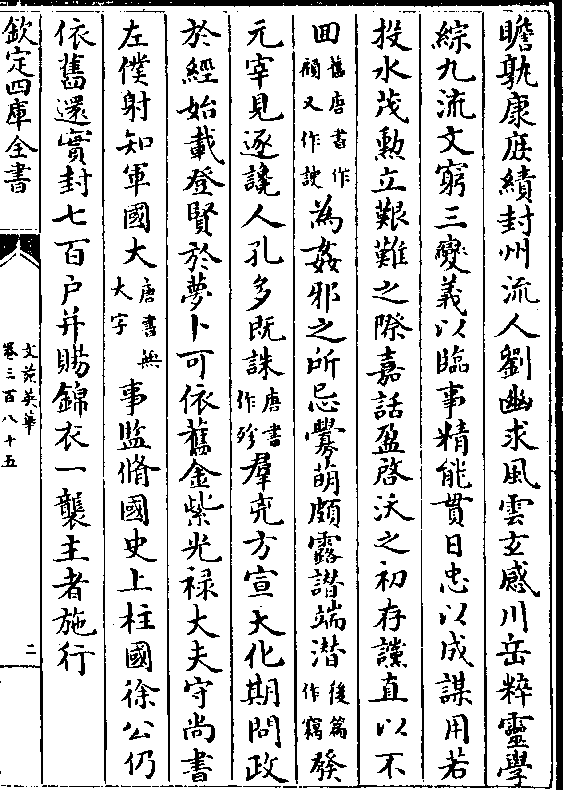 瞻孰康庶績封州流人劉幽求風雲玄感川岳粹靈學
綜九流文窮三變義以臨事精能貫日忠以成謀用若
投水茂勲立艱難之際嘉話盈啓沃之初存讜直以不
回舊唐書作顧又作詖為姦邪之所忌釁萌頗露譖端潜後篇作竊發
元宰見逐讒人孔多既誅唐書作殄羣兇方宣大化期問政
於經始載登賢於夢卜可依舊金紫光禄大夫守尚書
左僕射知軍國大唐書無大字事監脩國史上柱國徐公仍
依舊還實封七百户并賜錦衣一襲主者施行
欽定四庫全書
文苑英華
卷三百八十五
二